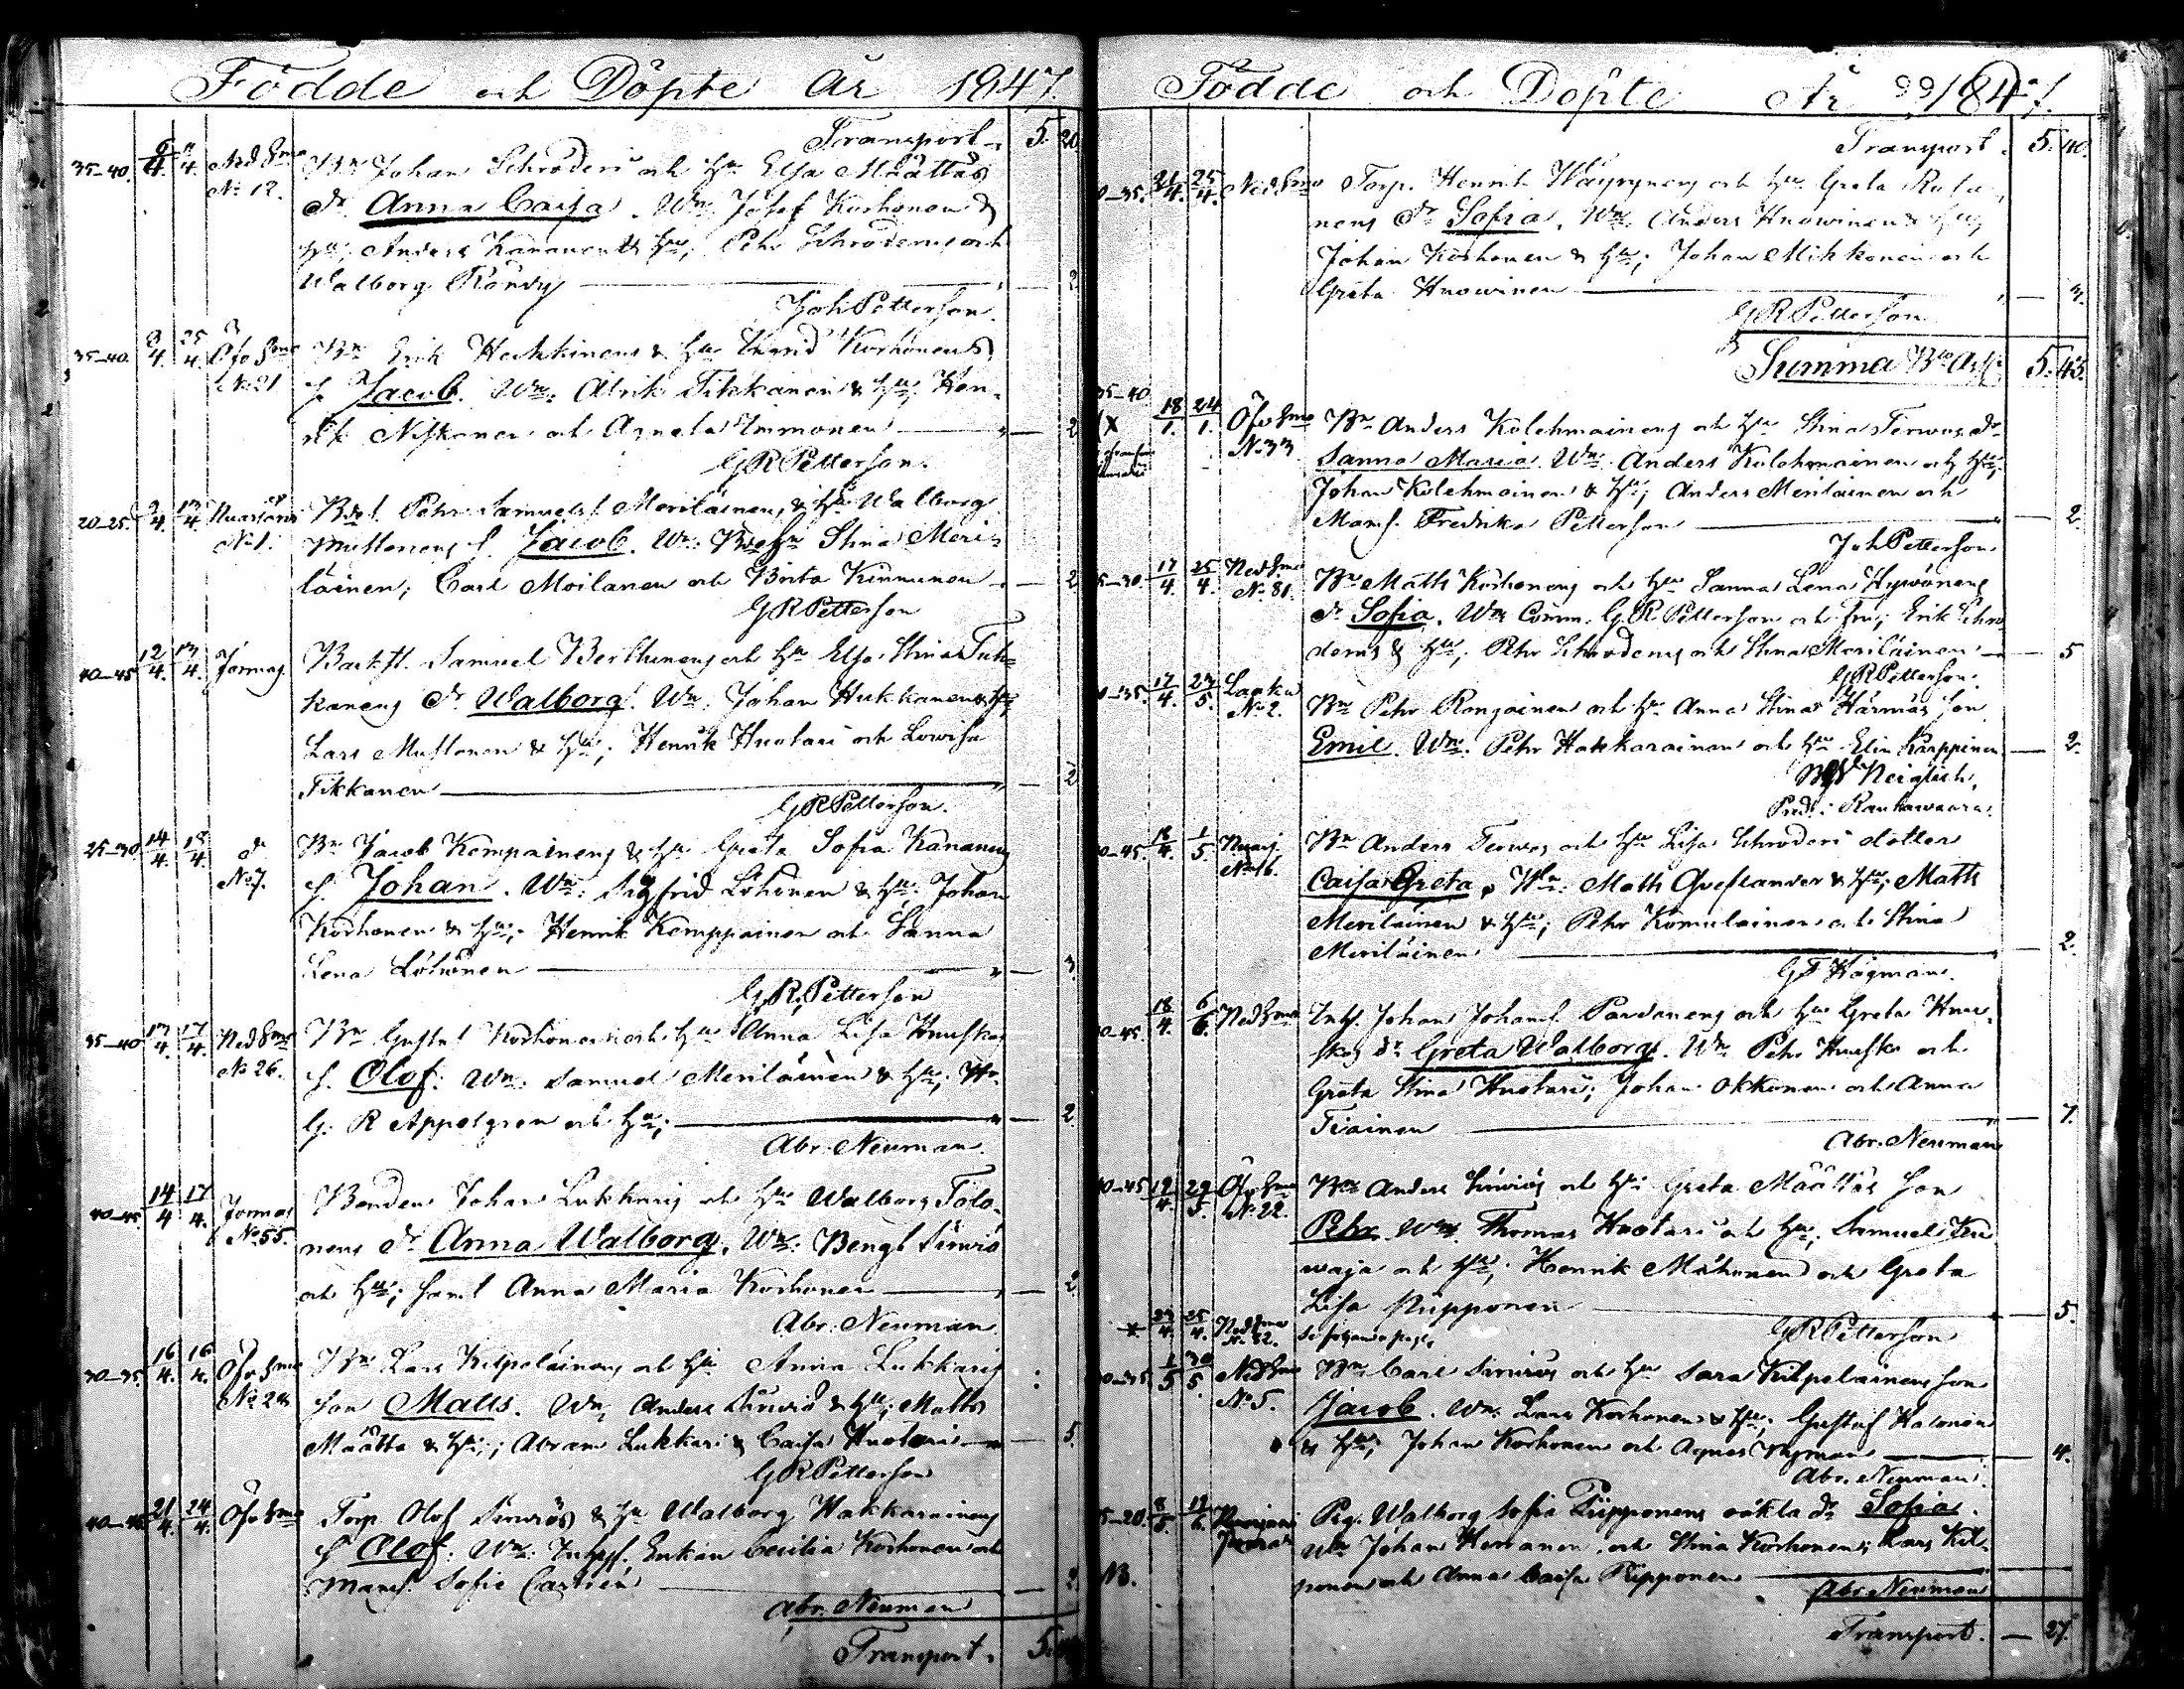 Födde och Döpte År 1847.
Transport. 5. 20
35-40. 6/4. 11/4. Ned Smo Bn Johan Schroderi och Hu Elsa Määttäs
No 12. dr Anna Caisa. Wn: Josef Korhonen &
Hu; Anders Kananen & Hu; Pehr Schroderus och
Walborg Röndy — 2
Joh Petterson.
35-40. 8/4. 25/4. Öfv Smo Bn Erik Heikkinens & Hu Ingrid Korhonens
No 21 s. Jacob. Wn: Alrik Tikkanen & Hu; Hen-
rik Niskanen och Agneta Immonen — 2
G R Petterson.
20-25. 9/4. 17/4. Nuasjärvi Bdes. Pehr Samuels. Meriläinens, & Hu Walborg
No 1. Mustonens s. Jacob. Wn: Stina Meri-
läinen; Carl Moilanen och Brita Kinnunen — 2
G R Petterson
40-45 12/4. 13/4. Jormas Backst. Samuel Berthunens och Hu Elsa Stina Tuh-
kanens dr Walborg. Wn: Johan Hukkanen & Hu;
Lars Mustonen & Hu; Henrik Huotari och Lovisa
Tikkanen — 2
G R Petterson.
25-30 14/4. 18/4. dr Bn Jacob Kempainens & Hu Greta Sofia Kananens
No 7. s. Johan. Wn: Sigfrid Löhönen & Hu; Johan
Korhonen & Hu; Henrik Kemppainen och Sanna
Lena Löhönen — 3.
G. R. Petterson
35-40 13/4. 17/4. Ned Smo Bn Gustaf Korhonens och Hu Anna Lisa Huuskos
No 26. s. Olof. Wn: Samuel Meriläinen & Hu; Hr
G. R Appelgren och Hu; — 2
Abr. Neuman.
40-45 14/4 17/4. Jormas Bonden Johan Lukkaris och Hu Walborg Tolo-
No 55. nens dr Anna Walborg. Wn: Bengt Sirviö
och Hu; samt Anna Maria Korhonen — 2
Abr. Neuman.
30-35. 16/4. 16/4. Öfv Smo Bn Lars Kilpeläinens och Hu Anna Lukkaris
No 28 son Matts. Wn; Anders Sirviö & Hu; Matts
Määttä & Hu; Abram Lukkari & Caisa Huotari — 5.
G R Petterson
40-45 21/4. 24/4. Öfv Smo Torp Olof Sirviös & Hu Walborg Hakkarainens
s Olof. Wn: Enkan Cecilia Korhonen och
Mams. Sofie Castrén — 2
Abr. Neuman
Transport. 5.
Födde och Döpte År 1847.
Transport. 5. 40.
21/4. 25/4. Ned Smo Torp. Henrik Wäyrynens och Hu Greta
nens dr Sofia. Wn: Anders Huovinen & Hu;
Johan Korhonen & Hu; Johan Mikkonen och
Greta Huovinen — 3.
G R Petterson
Summa 5. 43.
35-40
18/1. 24/1. Öfv Smo Bn Anders Kolehmainens och Hu Stina Tervos dr
No 33 Sanna Maria. Wn: Anders Kolehmainen och Hu;
Johan Kolehmainen & Hu; Anders Meriläinen och
Mams. Fredrika Petterson — 2.
Joh Petterson
17/4. 25/4. Ned Smo Bn Matts Korhonens och Hu Sanna Lena Hyvönens
No 81. dr Sofia. Wn: Comm. G. R Petterson och Fru; Erik Schro-
derus & Hu; Pehr Schroderus och Stina Meriläinen — 5
G R Petterson.
17/4. 23/5. Laaka Bn Pehr Rongainen och Hu Anna Stina Härmäs son
No 2. Emil. Wn: Pehr Hakkarainen och Hu Elin Karppinen — 2.
Neiglick,
Pred: i Rautawaara.
18/4. 1/5. Nuasj Bn Anders Tervos och Hu Lisa Schroderi dotter
No 16. Caisa Greta. Wn: Matts Qveflander & Hu; Matts
Meriläinen & Hu; Pehr Komulainen och Stina
Meriläinen — 2.
G F Hägman.
18/4. 6/6. Ned Smo Inhs. Johan Johans. Pardanens och Hu Greta Huu-
skos dr Greta Walborg. Wn: Pehr Huusko och
Greta Stina Huotari; Johan Okkonen och Anna
Tiainen — 7.
Abr. Neuman
40-45 19/4. 29/5. Öfv Smo Bn Anders Sirviös och Hu Greta Määttäs son
No 22. Pehr. Wn: Thomas Huotari och Hu; Samuel
waja och Hu; Henrik Mähönen och Greta
Lisa Piipponen — 5.
G R Petterson
* 23/4. 25/4. Ned Smo
No 82. se följande page.
1/5 30/5. Ned Smo Bn Carl Sirviös och Hu Sara Kilpeläinens son
No 5. Jacob. Wn: Lars Korhonen & Hu; Gustaf Halonen
& Hu; Johan Korhonen och Agnes Nyman — 4.
Abr. Neuman.
8/5. 17/6. Pig. Walborg Sofia Piipponens oäkta dr Sofia.
Wn Johan Herranen och Stina Korhonen; Lars Kil-
NB. ponen och Anna Caisa Piipponen
Abr. Neuman
Transport. — 27.